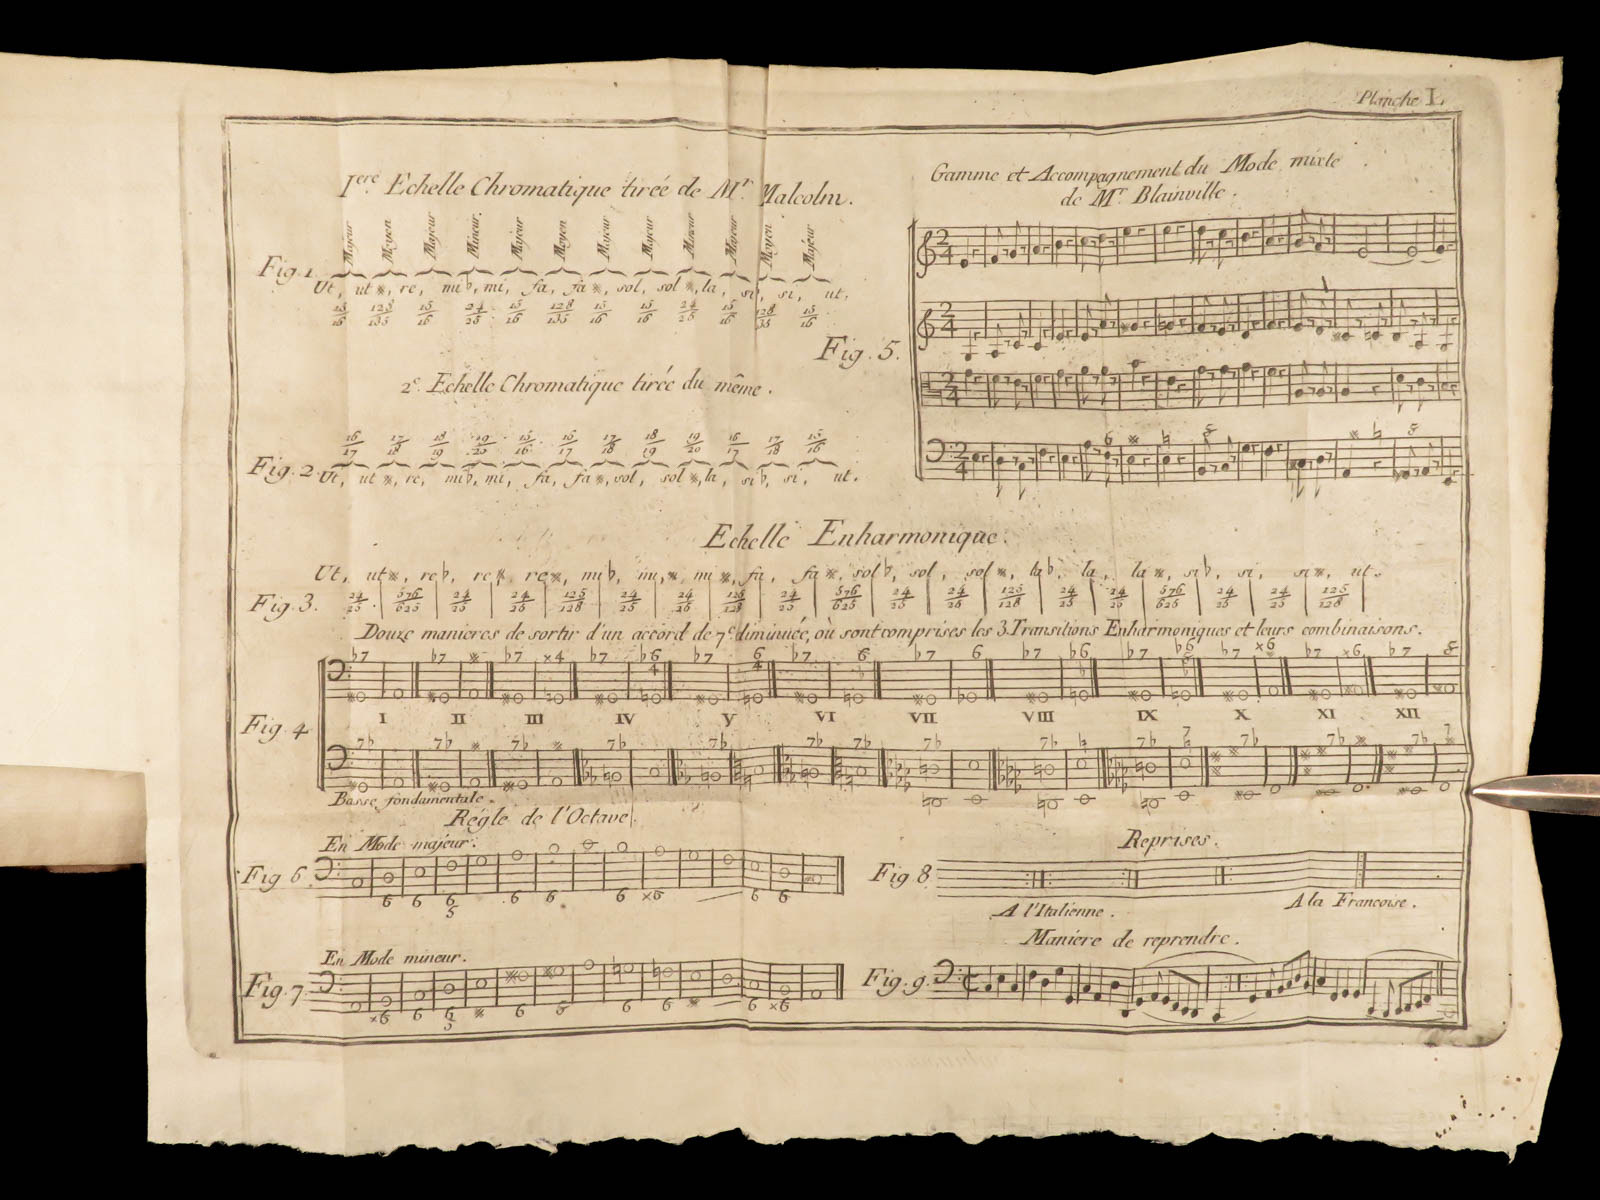 Planche I.
I.ere Echelle Chromatique tirée de Mr. Malcolm.
Majeur Moyen Majeur Mineur. Majeur Moyen Majeur Majeur Mineur Majeur Moyen Majeur
Fig. 1.
Ut, ut ※, re, mi♭, mi, fa, fa ※, sol, sol ※, la, si♭, si, ut.
15/16 128/135 15/16 24/25 15/16 128/135 15/16 15/16 24/25 15/16 128/135 15/16
2.e Echelle Chromatique tirée du même.
16/17 17/18 18/19 19/20 15/16 16/17 17/18 18/19 19/20 16/17 17/18 15/16
Fig. 2.
Ut, ut ※, re, mi♭, mi, fa, fa ※, sol, sol ※, la, si♭, si, ut.
Gamme et Accompagnement du Mode mixte
de Mr. Blainville.
Fig. 5.
2/4
2/4
2/4
6 ※ ♮ 5 ※ ♮ 5
2/4
Echelle Enharmonique.
Ut, ut※, re♭, re, re※, mi♭, mi, mi※, fa, fa※, sol♭, sol, sol※, la♭, la, la※, si♭, si, si※, ut.
Fig. 3.
24/25 576/625 24/25 24/25 125/128 24/25 24/25 125/128 24/25 576/625 24/25 24/25 125/128 24/25 24/25 576/625 24/25 24/25 125/128
Douze manieres de sortir d'un accord de 7.e diminuée, où sont comprises les 3. Transitions Enharmoniques et leurs combinaisons.
Fig. 4
♭7 ♭7 ※ ♭7 ×4 ♭7 ♭6 4 ♭7 6 4 ♭7 6 ♭7 6 ♭7 ♭6 ♭7 ♭6 ♭7 ×6 ♭7 ×6 ♭7 5
I II III IV V VI VII VIII IX X XI XII
7♭ 7♭ ※ 7♭ ※ 7♭ 7♭ 7♭ 7♭ 7♭ 7♭ ♮ 7♭ 7 ♮ 7♭ 7♭ ※ 7♭ 7
Basse fondamentale.
Régle de l'Octave.
En Mode majeur.
Fig 6.
6 6 6 5 6 6 6 ×6 6 6
En Mode mineur.
Fig. 7.
×6 6 6 5 ※ 6 6 6 6 ※ 6 ×6
Reprises.
Fig 8.
A l'Italienne. A la Francoise.
Maniere de reprendre.
Fig. 9.